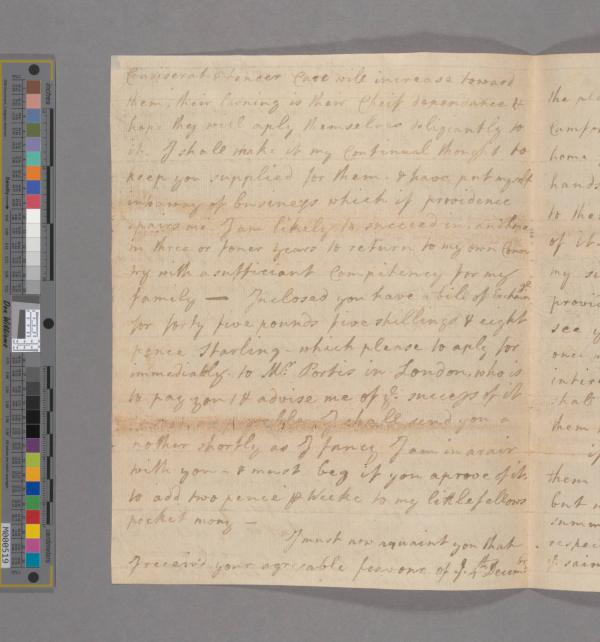 tender Care will increase toward
them, their Larning is their Cheif dependance &
hope they will aply themselves deligiantly to
it. I shall make it my Continual thought to
keep you supplied for them. I have put myself
in away of business which if providence
spairs me I am likely to succeed in, and
in three or foner years to return to my own Coun
try with a sufficiant Competency for my
family — Inclosed you have a bill of Exchain
for forty five pounds five shillings & eight
pence Starling - which please to aply for
immediably to Mr. Portis in London, who is
to pay you, & advise me of ye. success of it
I shall send you a
nother shortly as I fancy I am in arair
with you - & must beg if you aprove of it,
to add two pence ⅌ Weeke to my little fellows
pocket mony —
I must now aquaint you that
I receiv'd your agreable favour of ye. 4th Decembr
the pl
Comfor
home
hands
to the
of it
my s
provi
see y
once
intir
shall
them
if
them
but
summ
respe